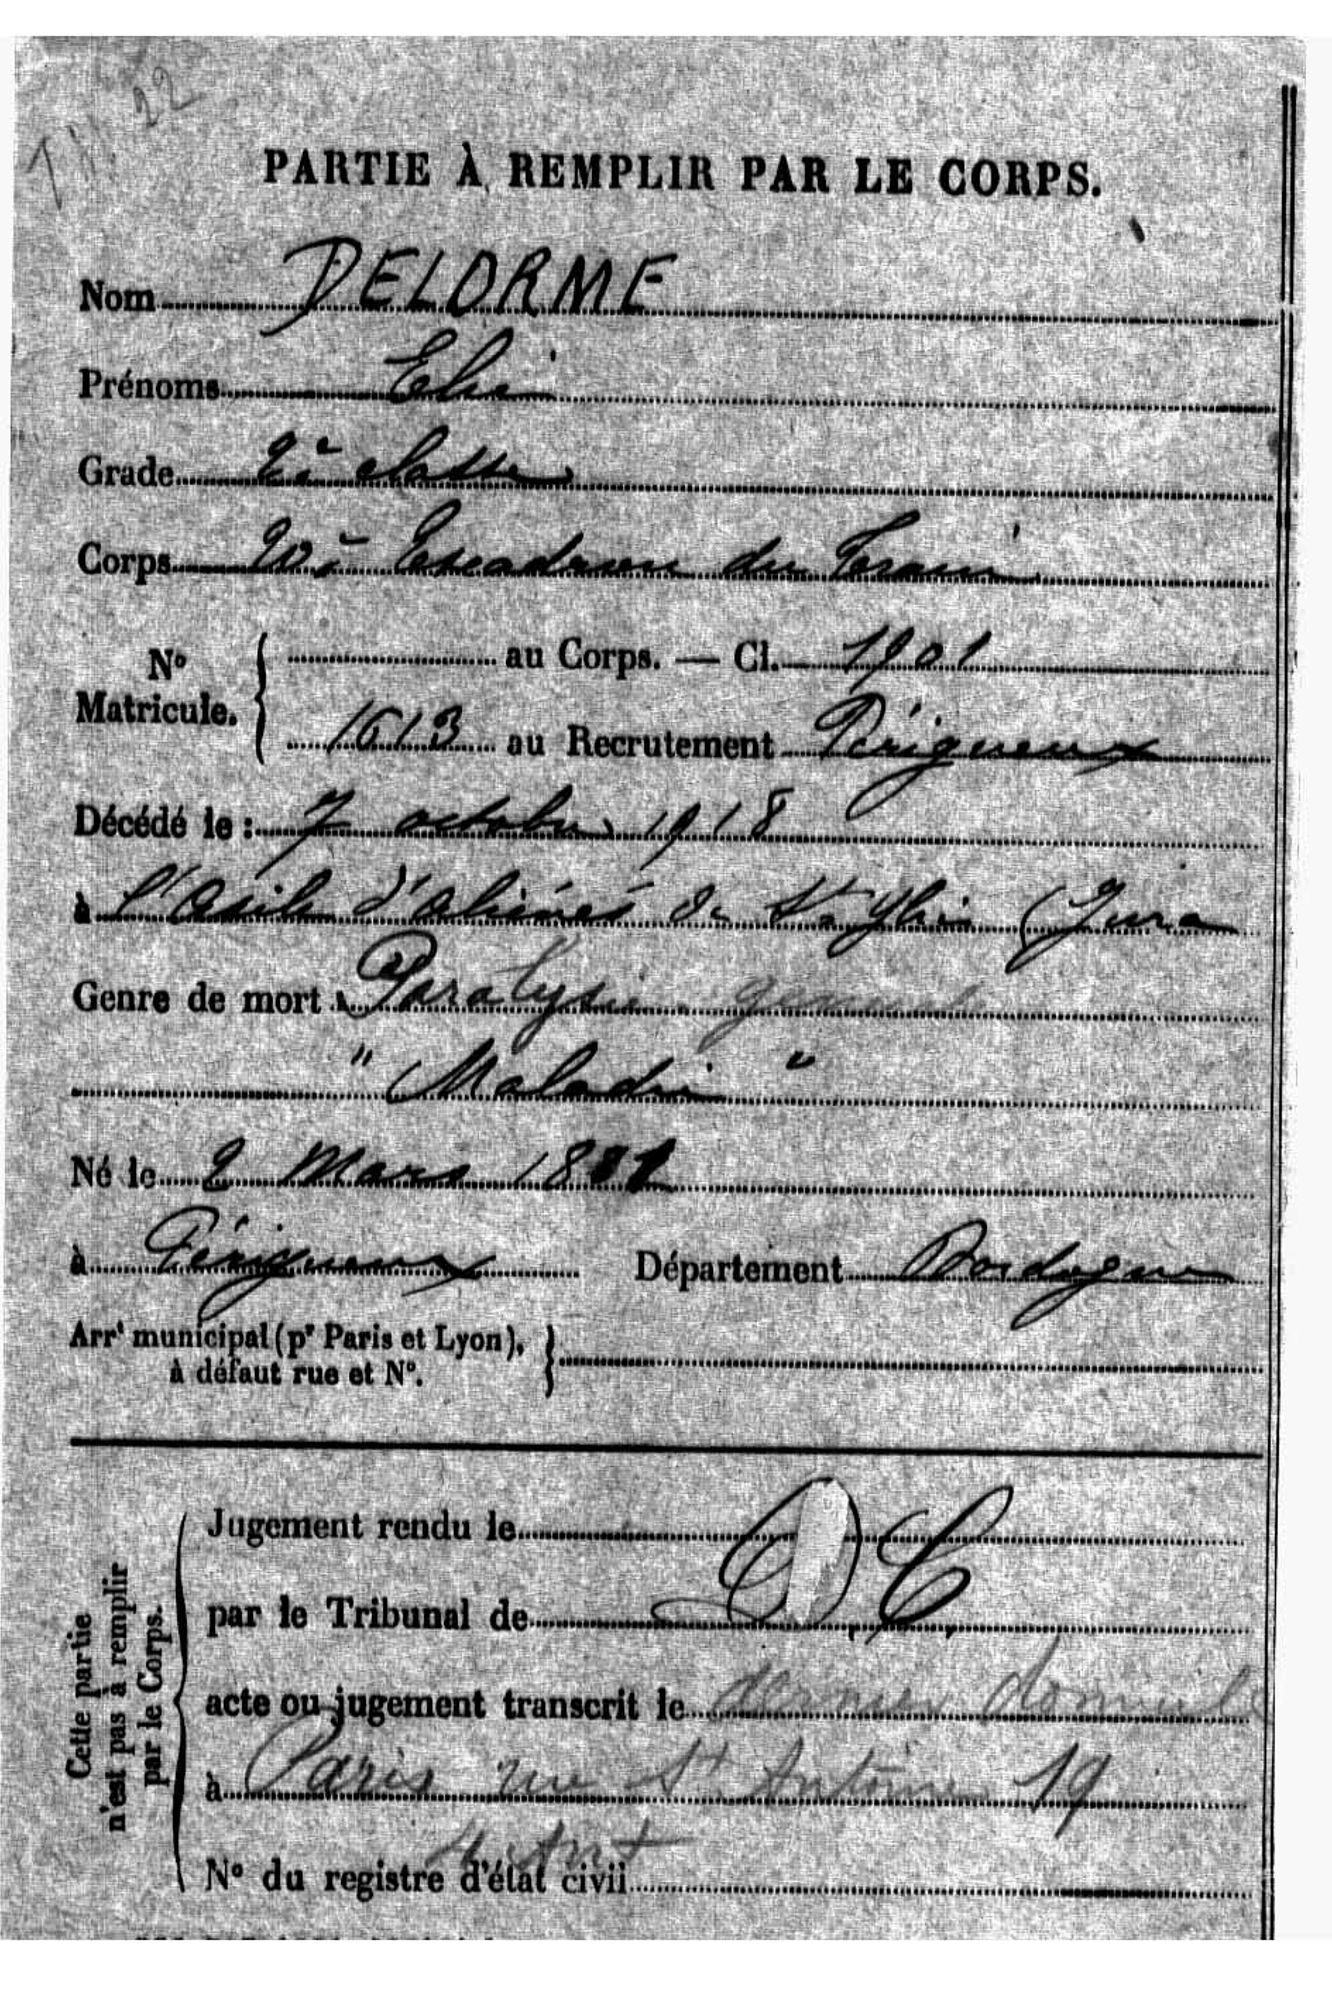 22
PARTIE À REMPLIR PAR LE CORPS.
Nom DELORME
Prénoms Elie
Grade 2è classe
Corps 20è Escadron du Train
N° Matricule. au Corps. — Cl. 1901
1613 au Recrutement Périgueux
Décédé le : 7 octobre 1918
à l'Asile d'aliénés de St Ylie (Jura
Genre de mort : Paralysie générale
" Maladie "
Né le 2 Mars 1881
à Périgueux Département Dordogne
Arrt municipal (pr Paris et Lyon),
à défaut rue et N°.
Cette partie
n'est pas à remplir
par le Corps.
Jugement rendu le D C
par le Tribunal de
acte ou jugement transcrit le dernier domicile
à Paris rue St Antoine 19
N° du registre d'état civil